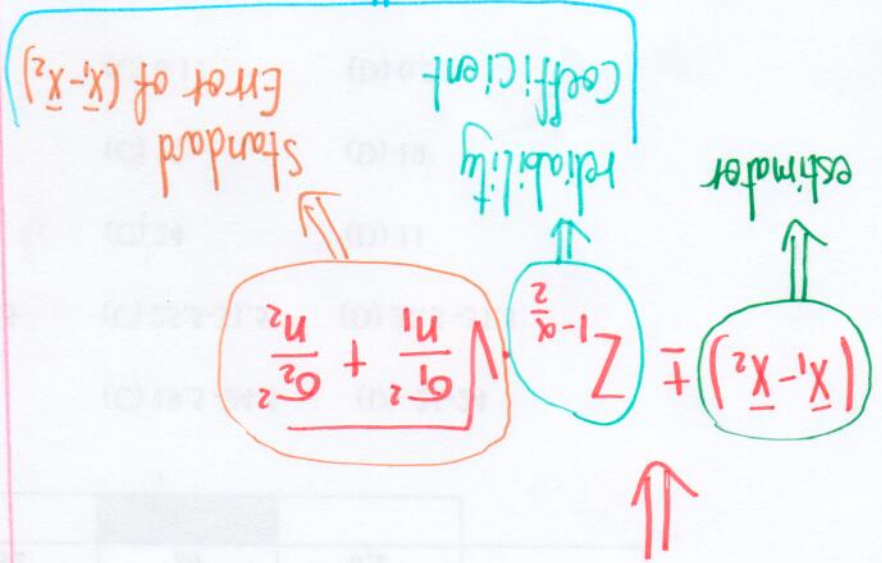 (X̄₁-X̄₂) ± Z₁₋α/₂ √(σ₁²/n₁ + σ₂²/n₂)
estimator
reliability
Coefficient
Standard
Error of (X̄₁-X̄₂)